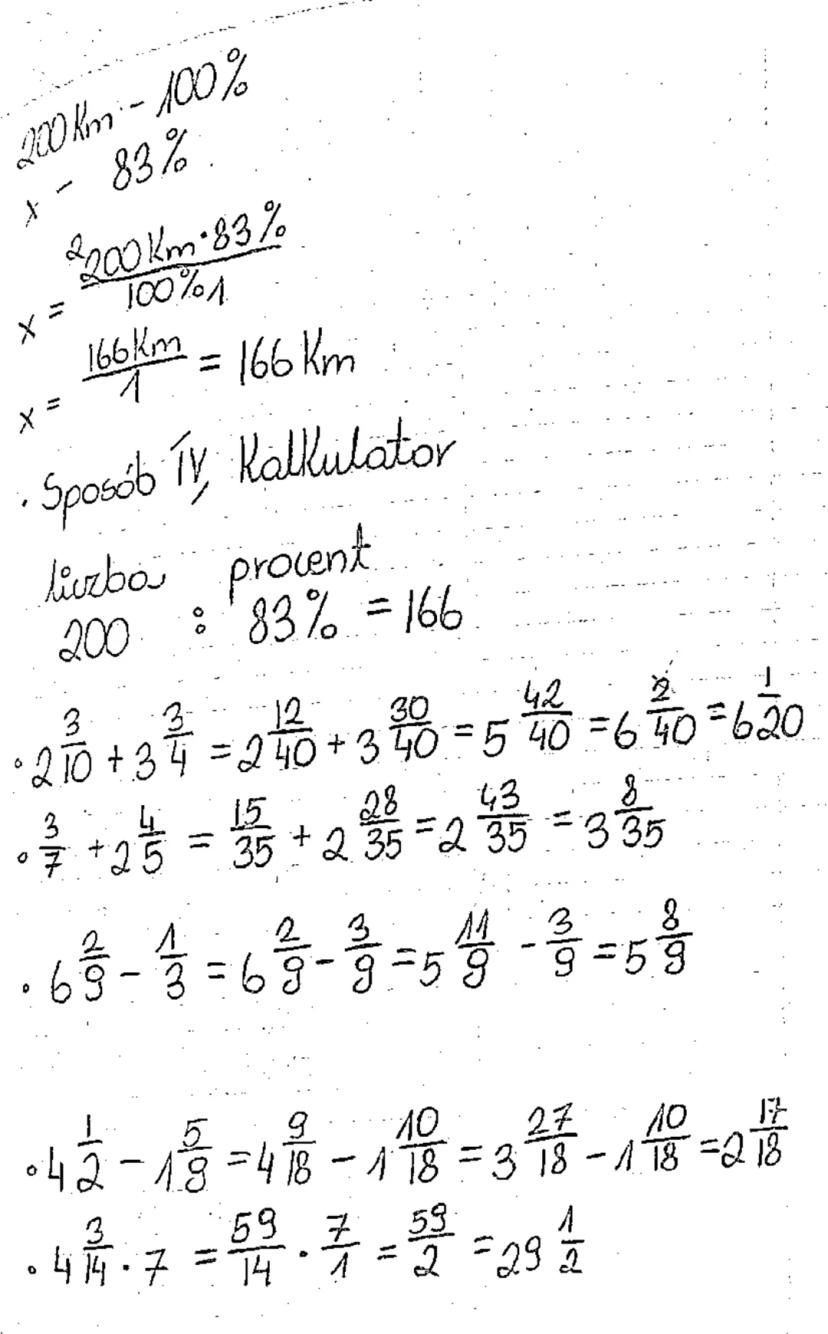 200 Km - 100%
x - 83%
x = ²200 Km · 83% / 100% 1
x = 166 Km / 1 = 166 Km
· Sposób IV, Kalkulator
liczba procent
200 : 83% = 166
· 2 3/10 + 3 3/4 = 2 12/40 + 3 30/40 = 5 42/40 = 6 2/40 = 6 1/20
· 3/7 + 2 4/5 = 15/35 + 2 28/35 = 2 43/35 = 3 8/35
· 6 2/9 - 1/3 = 6 2/9 - 3/9 = 5 11/9 - 3/9 = 5 8/9
· 4 1/2 - 1 5/9 = 4 9/18 - 1 10/18 = 3 27/18 - 1 10/18 = 2 17/18
· 4 3/14 · 7 = 59/14 · 7/1 = 59/2 = 29 1/2